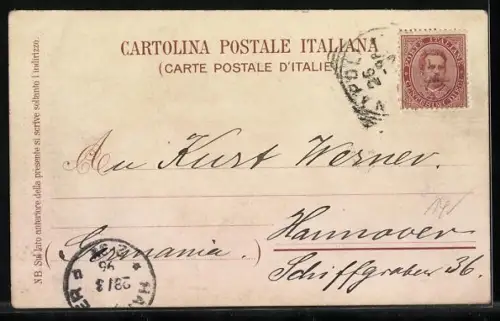 CARTOLINA POSTALE ITALIANA
(CARTE POSTALE D'ITALIE)
NAPOLI
26
POSTE ITALIANE
An Kurt Werner.
Hannover
(Germania.)
Schiffgraben 36.
NB. Sul lato anteriore della presente si scrive soltanto l'indirizzo.
HA
28 3
96
ER